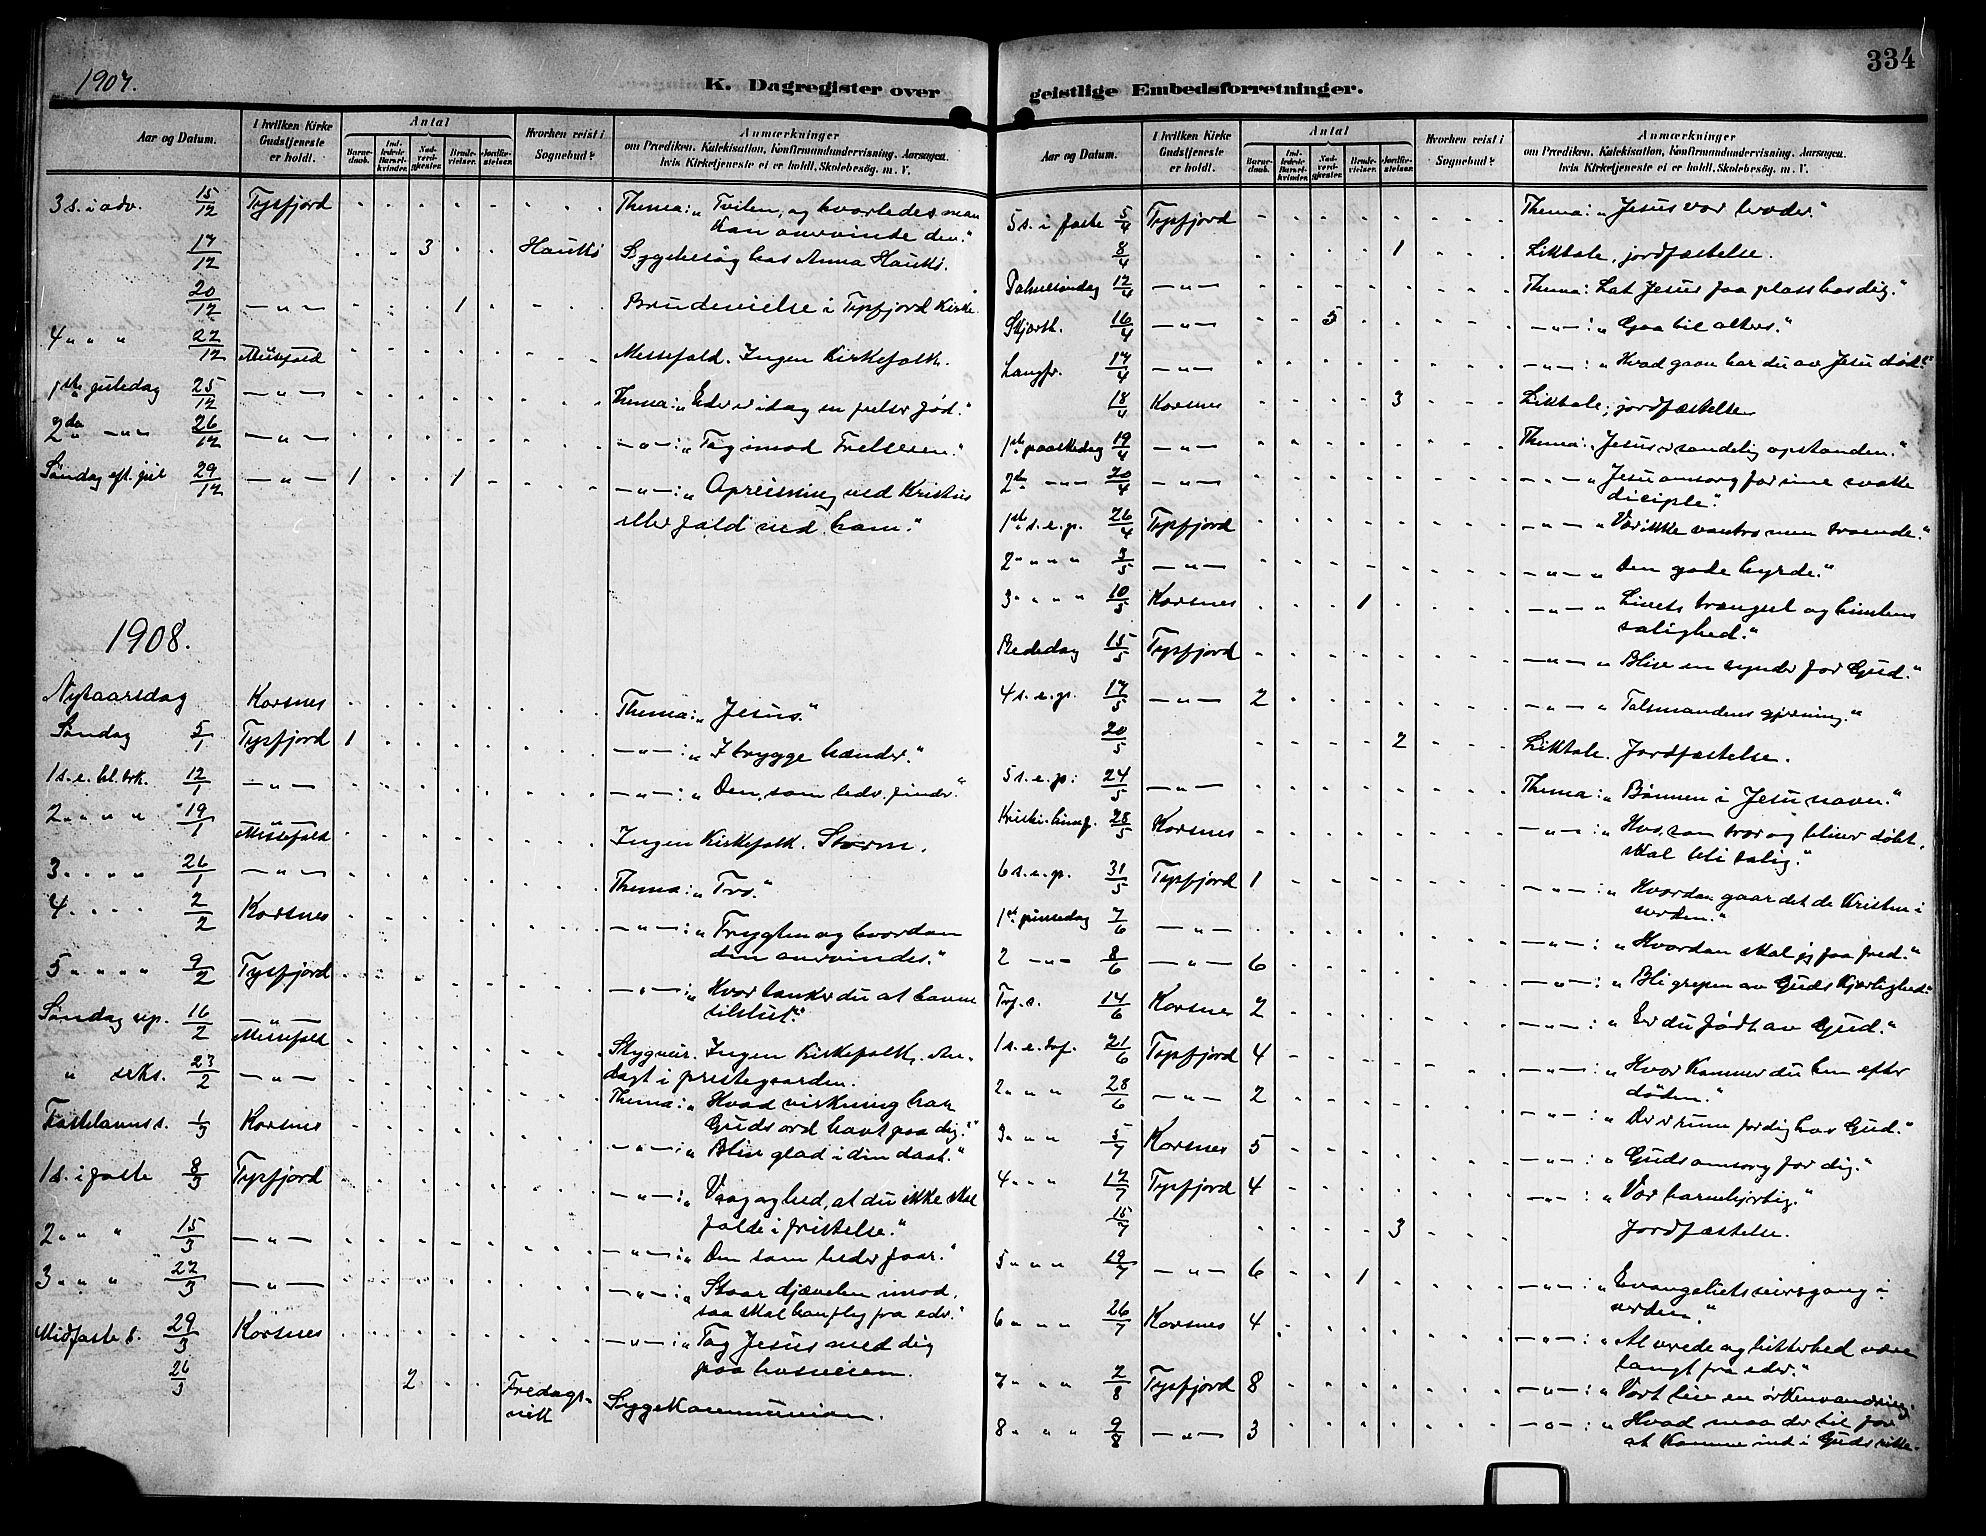 1907.
K. Dagregister over
Aar og Datum.
I hvilken Kirke Gudstjeneste er holdt.
Antal
Barnedaab.
Indledede Barselkvinder.
Nadverdgjester.
Brudevielser.
Jordfæstelser.
Hvorhen reist i Sognebud?
Anmærkninger
om Prædiken, Katekisation, Konfirmandundervisning, Aarsagen,
hvis Kirketjeneste ei er holdt, Skolebesøg m. V.
3 s. i adv. 15/12 Tysfjord Thema: „Tvilen, og hvorledes man
kan overvinde den.“
17/12 3 Haukø Sygebesøg hos Anna Haukø.
20/12 —„— 1 Brudevielse i Tysfjord Kirke.
4 „ „ 22/12 —„— Messefald Messefald. Ingen Kirkefolk.
1ste juledag 25/12 —„— Thema: „Eder er idag en frelser fød.“
2den —„— 26/12 —„— —„—: „Tag imod Frelseren.“
Søndag eft. jul 29/12 —„— 1 1 —„—: „Opreisning ved Kristus
eller fald ved ham.“
1908.
Nytaarsdag Korsnes Thema: „Jesus.“
Søndag 5/1 Tysfjord 1 —„—: „I trygge hænder.“
1 s. e. hl. trk. 12/1 —„— —„—: „Den, som leder, finder.“
2 „ „ „ 19/1 —„— Messefald Ingen Kirkefolk. Storm.
3 „ „ „ 26/1 —„— Thema: „Tro.“
4 „ „ „ 2/2 Korsnes —„—: „Frygten og hvordan
den overvindes.“
5 „ „ „ 9/2 Tysfjord —„—: „Hvor tænker du at havne
tilslut?“
Søndag sep. 16/2 —„— Messefald Stygveir. Ingen Kirkefolk. An-
dagt i prestegaarden.
„ seks. 23/2 —„— Thema: „Hvad virkning har
Guds ord havt paa dig?“
Fastelavns s. 1/3 Korsnes —„—: „Bliv glad i din daab.“
1 s. i faste 8/3 Tysfjord —„—: „Vaag og bed, at du ikke skal
falde i fristelse.“
2 „ „ 15/3 —„— —„—: „Den som beder faar.“
3 „ „ 22/3 —„— —„—: „Staar djævelen imod,
saa skal han fly fra eder.“
Midfaste s. 29/3 Korsnes —„—: „Tag Jesus med dig
paa korsveien.
26/3 2 Fredagsvik Sygekommunion.
334
geistlige Embedsforretninger.
Aar og Datum.
I hvilken Kirke Gudstjeneste er holdt.
Antal
Barnedaab.
Indledede Barselkvinder.
Nadverdgjester.
Brudevielser.
Jordfæstelser.
Hvorhen reist i Sognebud?
Anmærkninger
om Prædiken, Katekisation, Konfirmandundervisning, Aarsagen,
hvis Kirketjeneste ei er holdt, Skolebesøg m. V.
5 s. i faste 5/4 Tysfjord Thema: „Jesus vor broder.“
8/4 1 Liktale, jordfæstelse.
Palmesøndag 12/4 —„— Thema: Lat Jesus faa plass hos dig.“
Skjærth. 16/4 —„— 5 —„—: „Gaa til alters.“
Langfr. 17/4 —„— —„—: „Hvad gavn har du av Jesu død?“
18/4 Korsnes 3 Liktale, jordfæstelse
1ste paaskedag 19/4 —„— Thema: „Jesus er sandelig opstanden.“
2den —„— 20/4 —„— —„— „Jesu omsorg for sine svake
disciple.“
1ste s. e. p. 26/4 Tysfjord —„— „Vær ikke vantro men troende.“
2 „ „ „ 3/5 —„— —„— „Den gode hyrde.“
3 „ „ „ 10/5 Korsnes 1 —„— „Livets trængsel og himlens
salighed.“
Bededag 15/5 Tysfjord —„— „Blive en synder for Gud.“
4 s. e. p. 17/5 —„— 2 —„— „Talsmandens gjerning.“
20/5 2 Liktale. Jordfæstelse.
5 s. e. p. 24/5 —„— Thema: „Bønnen i Jesu navn.“
Kristi himf. 28/5 Korsnes —„—: „Hvo, som tror og bliver døbt,
skal bli salig.“
6 s. e. p. 31/5 Tysfjord 1 —„—: „Hvordan gaar det de kristne i
verden.“
1ste pinsedag 7/6 —„— —„—: „Hvordan skal jeg faa fred.“
2 —„— 8/6 —„— 6 —„—: „Bli grepen av Guds kjærlighed.“
Tref. s. 14/6 Korsnes 2 —„— „Er du født av Gud.“
1 s. e. tref. 21/6 Tysfjord 4 —„—: „Hvor kommer du hen efter
døden.“
2 „ „ 28/6 —„— 2 —„—: „Der er rum for dig hos Gud.“
3 „ „ 5/7 Korsnes 5 —„—: „Guds omsorg for dig.“
4 „ „ 12/7 Tysfjord 4 —„—: „Vær barmhjertig.“
15/7 3 Jordfæstelse.
5 „ „ 19/7 —„— 6 1 —„—: „Evangeliets seiersgang i
verden.“
6 „ „ 26/7 Korsnes 4 —„—: „Al vrede og bitterhed være
langt fra eder.“
7 „ „ 2/8 Tysfjord 8 —„—: „Vort liv en ørkenvandring.
8 „ „ 9/8 —„— 3 —„—: „Hvad maa der til for
at komme ind i Guds rike.